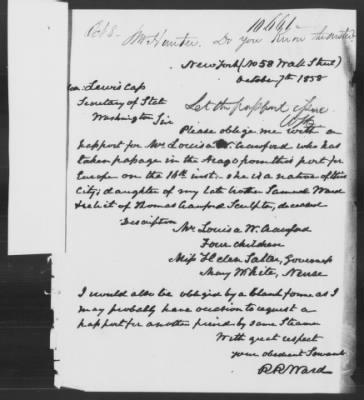 Oct 8 -
Mr Hunter. Do you know the writer
New York (No 58 Wall Street)
October 7th 1858
Hon. Lewis Cass
Secretary of State
Washington Sir
Let the passport issue
Please oblige me with a
passport for Mrs Louisa W. Crawford who has
taken passage in the Arago from this port for
Europe on the 16th inst. She is a native of this
City; daughter of my late brother Samuel Ward
& relict of Thomas Crawford Sculptor, deceased
Description
Mrs Louisa W. Crawford
Four children
Miss Helen Governess
Mary White, Nurse
I would also be obliged by a blank form as I
may probably have occasion to request a
passport for another friend by same Steamer
With great respect
your obedient Servant
R R Ward